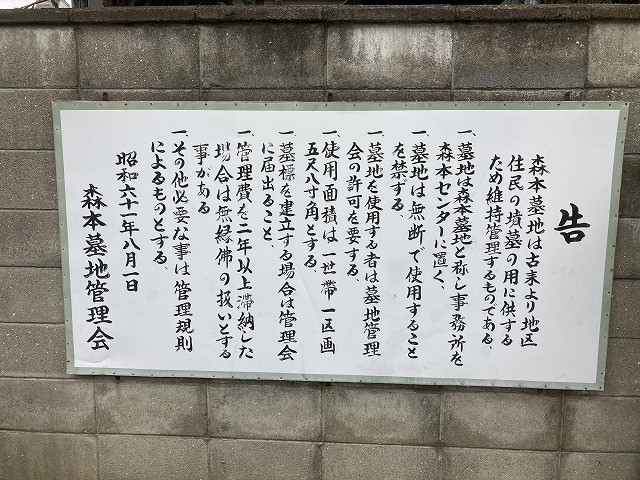 告
森本墓地は古来より地区
住民の墳墓の用に供する
ため維持管理するものである、
一、墓地は森本墓地と称し事務所を
森本センターに置く、
一、墓地は無断で使用すること
を禁ずる、
一、墓地を使用する者は墓地管理
会の許可を要する、
一、使用面積は一世帯一区画
五尺八寸角とする、
一、墓標を建立する場合は管理会
に届出ること、
一、管理費を二年以上滞納した
場合は無縁佛の扱いとする
事がある
一、その他必要な事は管理規則
によるものとする、
昭和六十一年八月一日
森本墓地管理会